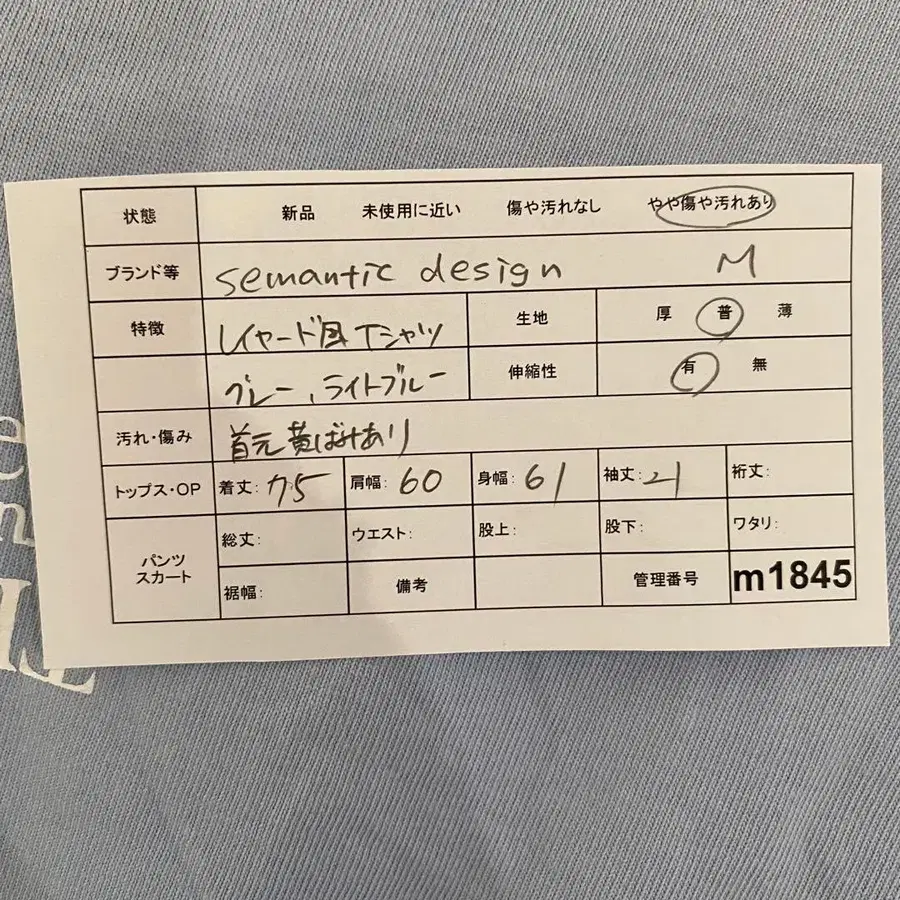 状態 新品 未使用に近い 傷や汚れなし やや傷や汚れあり
ブランド等 semantic design M
特徴 レイヤード風Tシャツ 生地 厚 普 薄
グレー、ライトブルー 伸縮性 有 無
汚れ・傷み 首元黄ばみあり
トップス・OP 着丈: 75 肩幅: 60 身幅: 61 袖丈: 21 裄丈:
パンツ スカート 総丈: ウエスト: 股上: 股下: ワタリ:
裾幅: 備考 管理番号 m1845